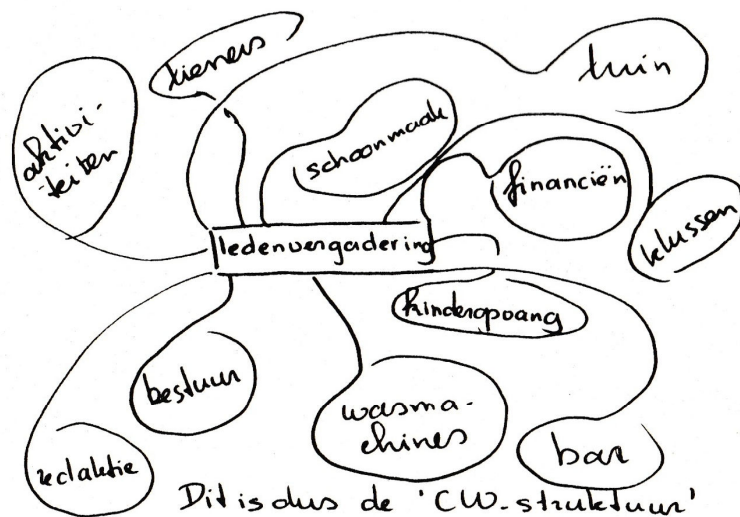 tieners
tuin
aktivi-
-teiten
schoonmaak
financiën
klussen
ledenvergadering
kinderopvang
bestuur
wasma-
chines
bar
redaktie
Dit is dus de 'CW-struktuur'